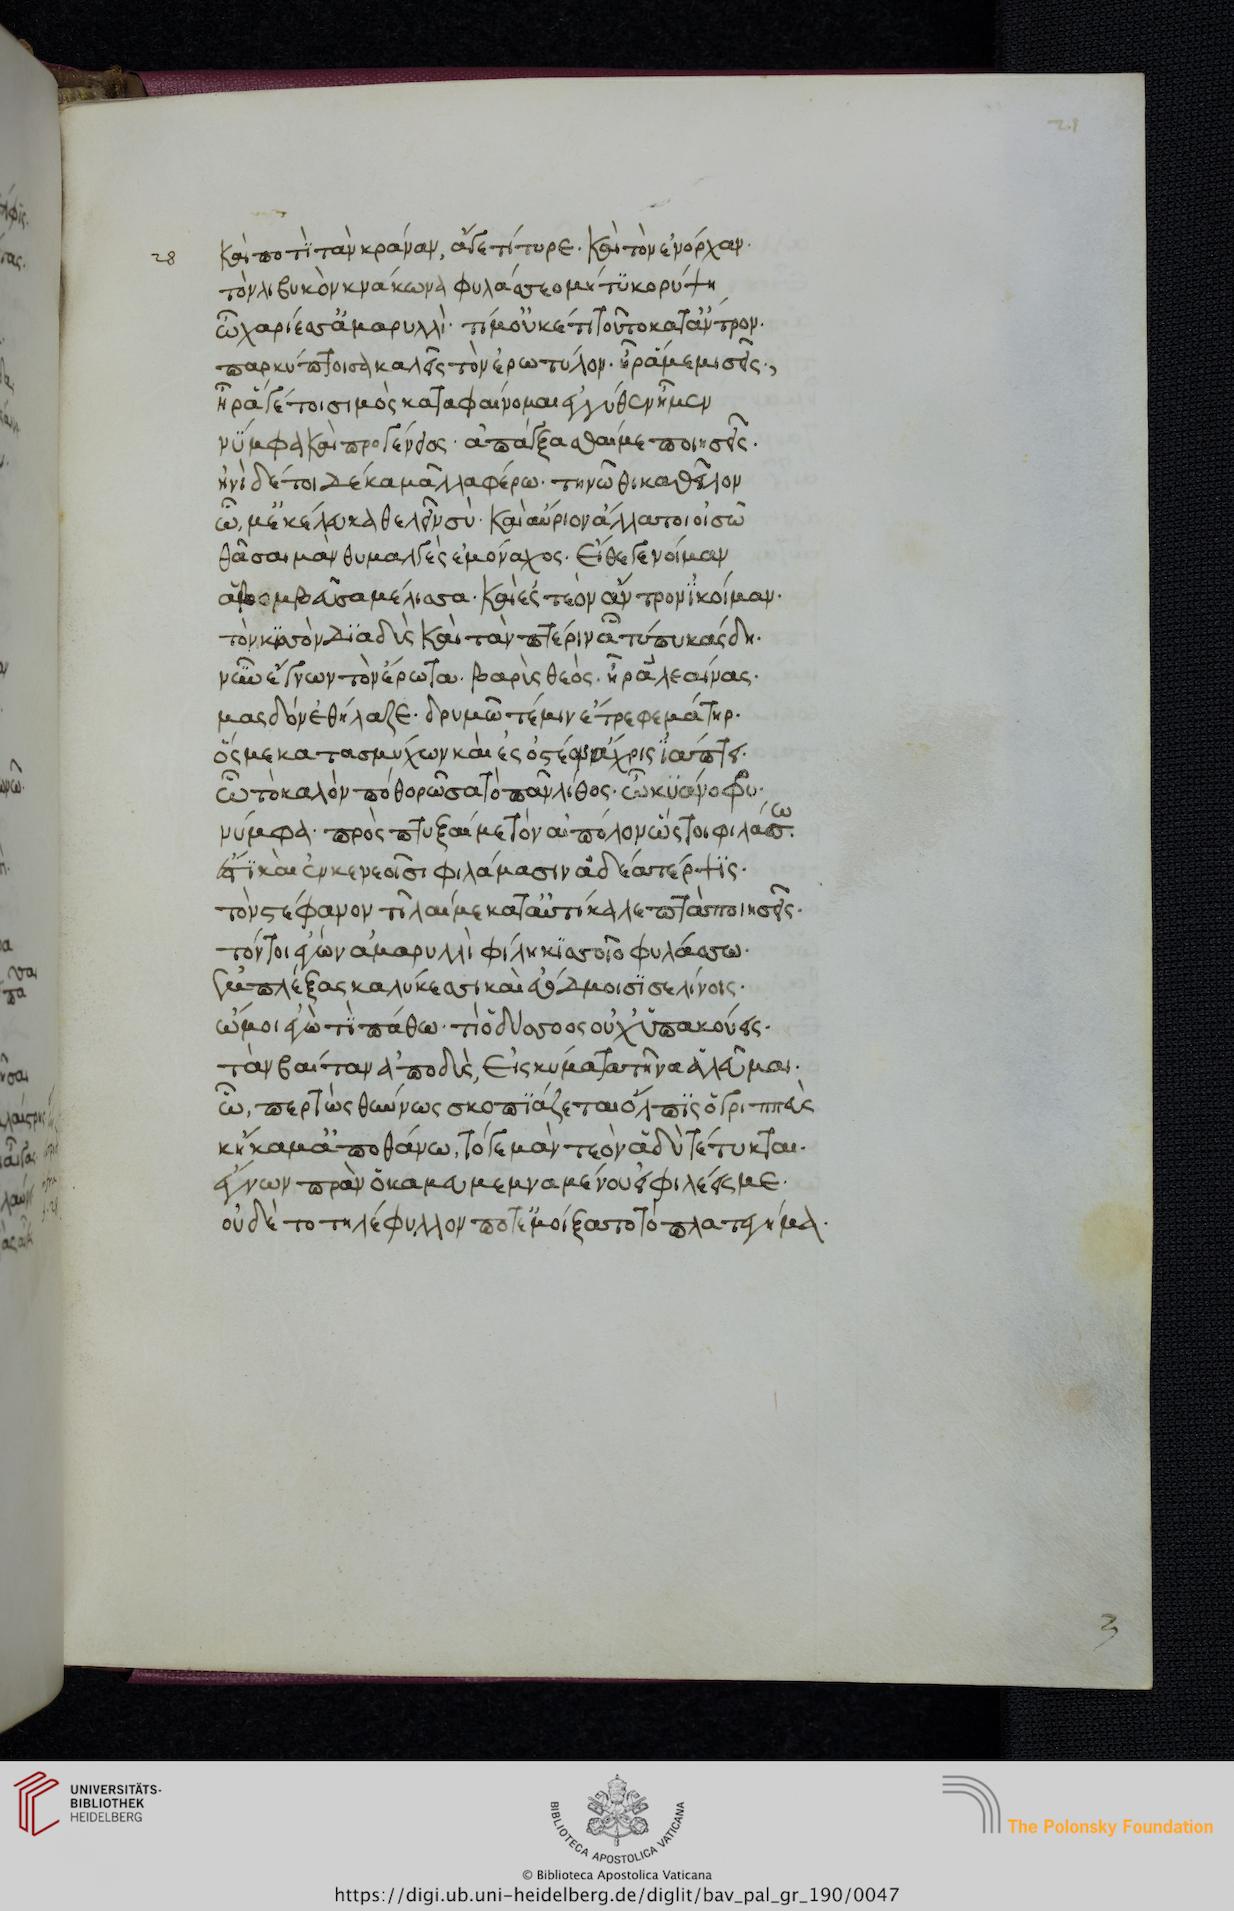 28
21
καὶ ποτὶ τὰν κράναν, ἄγε τίτυρε. καὶ τὸν ἐνόρχαν.
τὸν λιβυκὸν κνάκωνα φυλάσσεο μή τϋ κορύψη
ὦ χαρίεσσ ἀμαρυλλὶ. τί μ οὐκέτι τοῦτο κατ ἄντρον.
παρκύπτοισα καλεῖς τὸν ἐρωτύλον. ἦ ρά με μισεῖς.,
ἦ ρά γέ τοι σιμὸς καταφαίνομαι ἐγγύθεν ἦμεν
νύμφα καὶ προγένειος. ἀπάγξασθαί με ποιησεῖς.
ἠνὶδέ τοι δέκα μᾶλλα φέρω. τηνῶθι καθεῖλον
ὦ, μ ἐκέλευ καθελεῖν σύ. καὶ αὔριον ἄλλα τοι οἰσῶ
θᾶσαι μὰν θυμαλγὲς ἐμὸν ἄχος. εἴθε γενοίμαν
ἁ βομβεῦσα μέλισσα. καὶ ἐς τεὸν ἄντρον ἱκοίμαν.
τὸν κισσὸν διαδὺς καὶ τὰν πτέριν ἇ τύ πυκάσδη.
νῦν ἔγνων τὸν ἔρωτα. βαρὺς θεὸς. ἦ ρα λεαίνας.
μασδόν ἐθήλαζε. δρυμῶ τέ μιν ἔτρεφε μάτηρ.
ὅς με κατασμύχων καὶ ἐς ὀστέον ἄχρις ἰάπτει.
ὦ τὸ καλόν ποθορῶσα τὸ πᾶν λίθος. ὦ κυάνοφρυ.
νύμφα. πρὸς πτυξαί με τὸν αἰπόλον ὥς τοι φιλάσω.
ἔστι καὶ ἐν κενεοῖσι φιλάμασιν ἁδέα τέρψις.
τὸν στέφανον τῖλαί με κατ αὐτίκα λεπτὰ ποιησεῖς.
τόν τοι ἐγών ἀμαρυλλὶ φίλη κισσοῖο φυλάσσω.
ἐμπλέξας καλύκεσσι καὶ εὐόδμοισι σελίνοις.
ὤμοι ἐγὼ τὶ πάθω. τὶ ὁ δύσσοος οὐχ ὑπακούεις.
τὰν βαίταν ἀποδὺς, εἰς κύματα τῆνα ἁλεῦμαι.
ὦ, περ τὼς θύννως σκοπιάζεται ὄλπις ὁ γριππεὺς
κἤκα μὰ ποθάνω, τό γε μὰν τεὸν ἁδὺ τέτυκται.
ἔγνων πρὰν ὅκα μευ μεμναμένου εἰ φιλέεις με.
οὐδὲ το τηλέφυλλον ποτεμάξατο τό πλατάγημα.
3
UNIVERSITÄTS-
BIBLIOTHEK
HEIDELBERG
BIBLIOTECA APOSTOLICA VATICANA
The Polonsky Foundation
© Biblioteca Apostolica Vaticana
https://digi.ub.uni-heidelberg.de/diglit/bav_pal_gr_190/0047